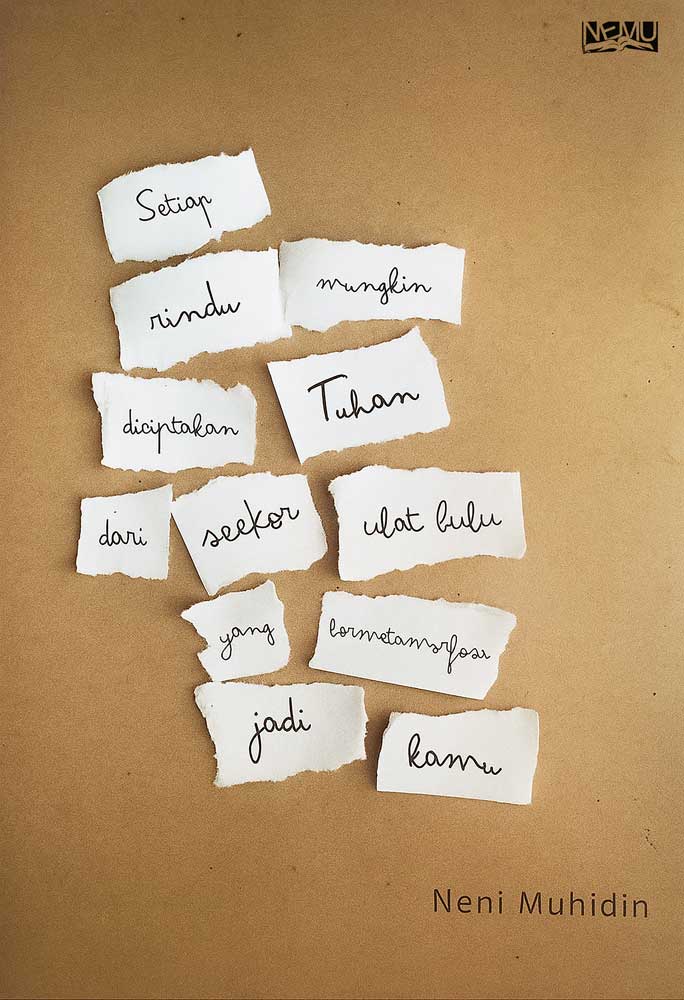 NEMU
Setiap
rindu mungkin
diciptakan Tuhan
dari seekor ulat bulu
yang bermetamorfosa
jadi kamu
Neni Muhidin